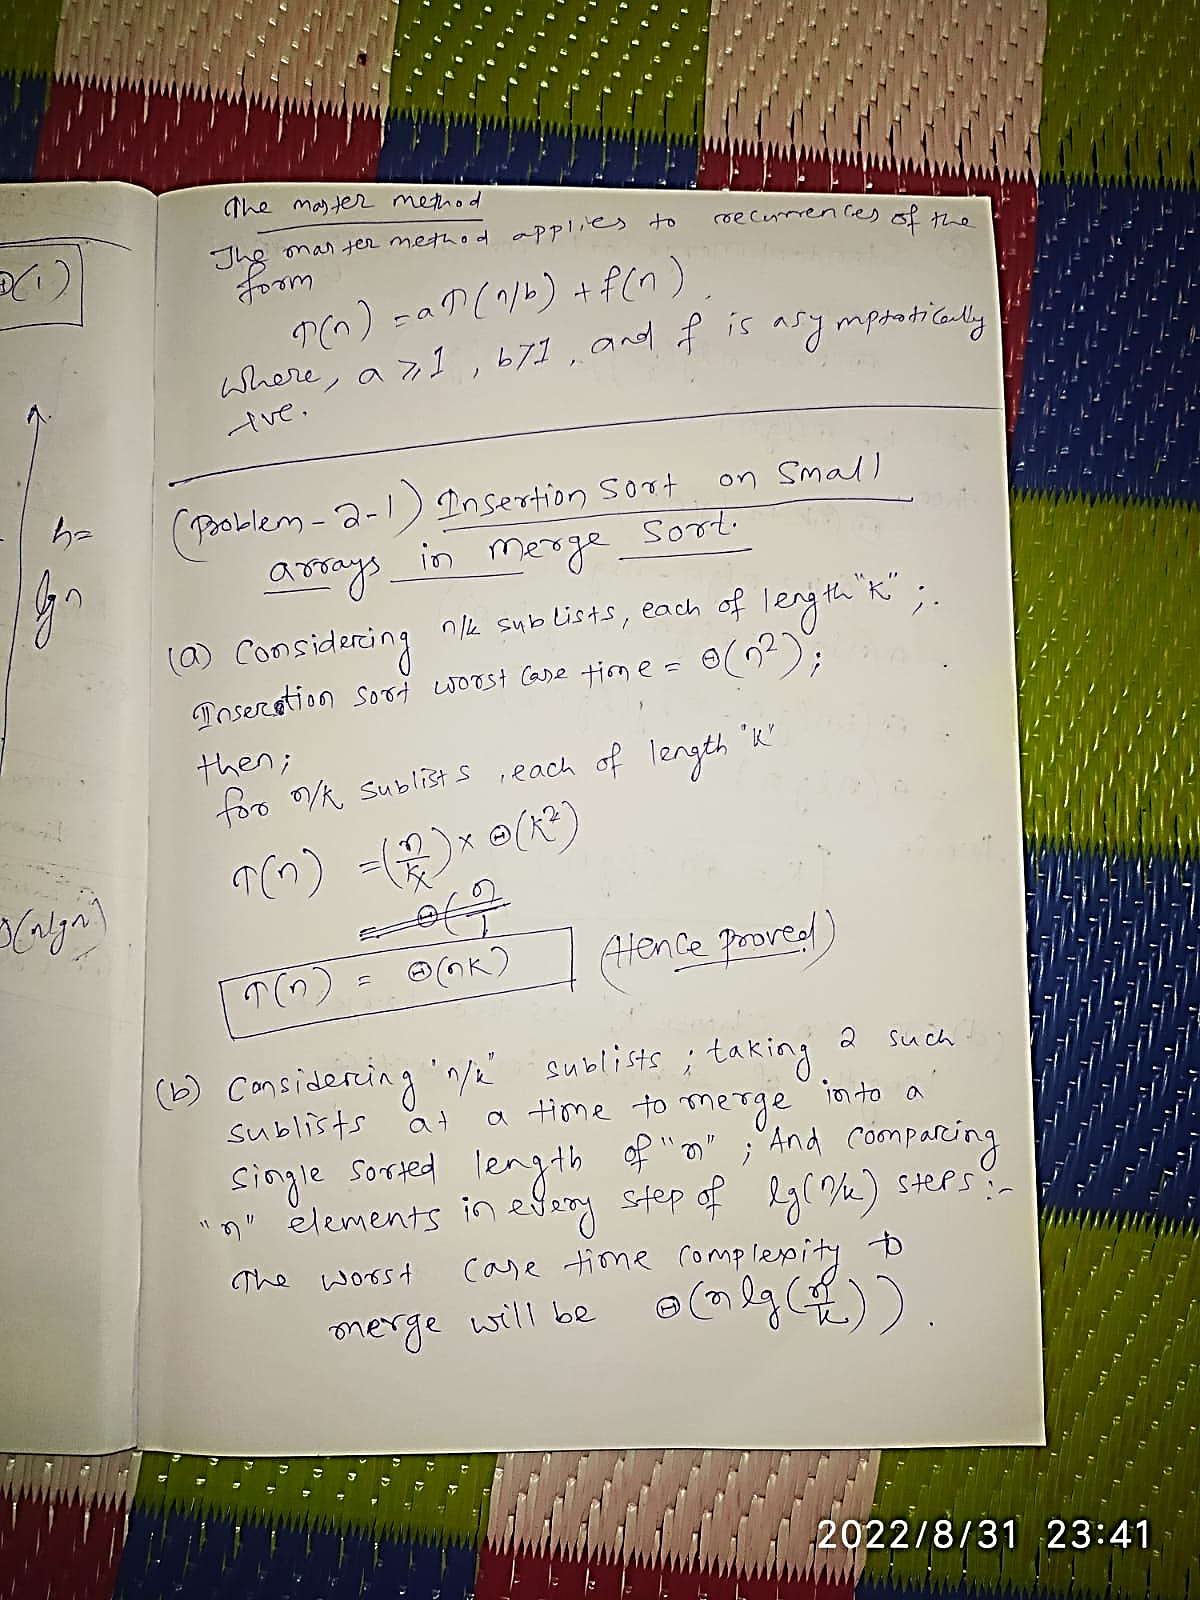 The master method
The master method applies to recurrences of the
form
T(n) = aT(n/b) + f(n).
where, a ≥ 1, b>1, and f is asymptotically
+ve.
(Problem-2-1) Insertion Sort on Small
arrays in merge sort.
(a) Considering n/k sublists, each of length "K";.
Insertion sort worst case time = Θ(n²);
then;
for n/k sublists, each of length "K"
T(n) = (n/k) × Θ(k²)
= Θ(n/
T(n) = Θ(nk) (Hence proved)
(b) Considering "n/k" sublists; taking 2 such
sublists at a time to merge into a
single sorted length of "n"; And comparing
"n" elements in every step of lg(n/k) steps:-
The worst case time complexity to
merge will be Θ(n lg(n/k)).
Θ(1)
h=
lg n
(nlgn)
2022/8/31 23:41